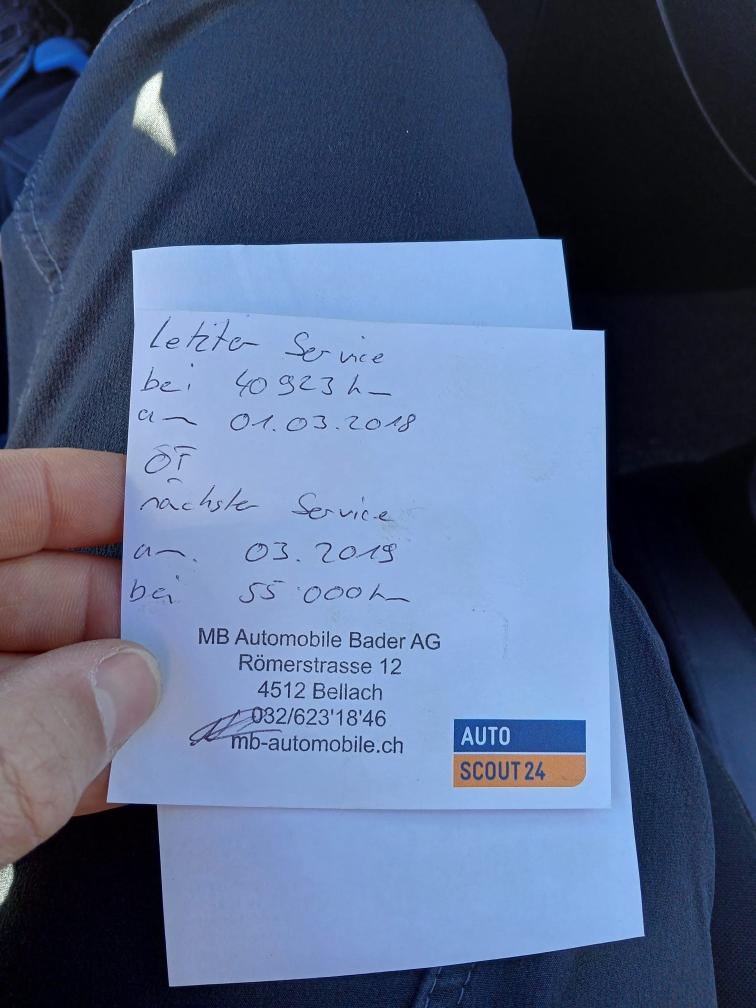 letzter Service
bei 40923 km
am 01.03.2018
ÖF
nächster Service
am 03.2019
bei 55'000 km
MB Automobile Bader AG
Römerstrasse 12
4512 Bellach
032/623'18'46
mb-automobile.ch
AUTO
SCOUT24